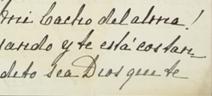 mi cacho del alma!
uando y te está costan-
dito sea Dios que te